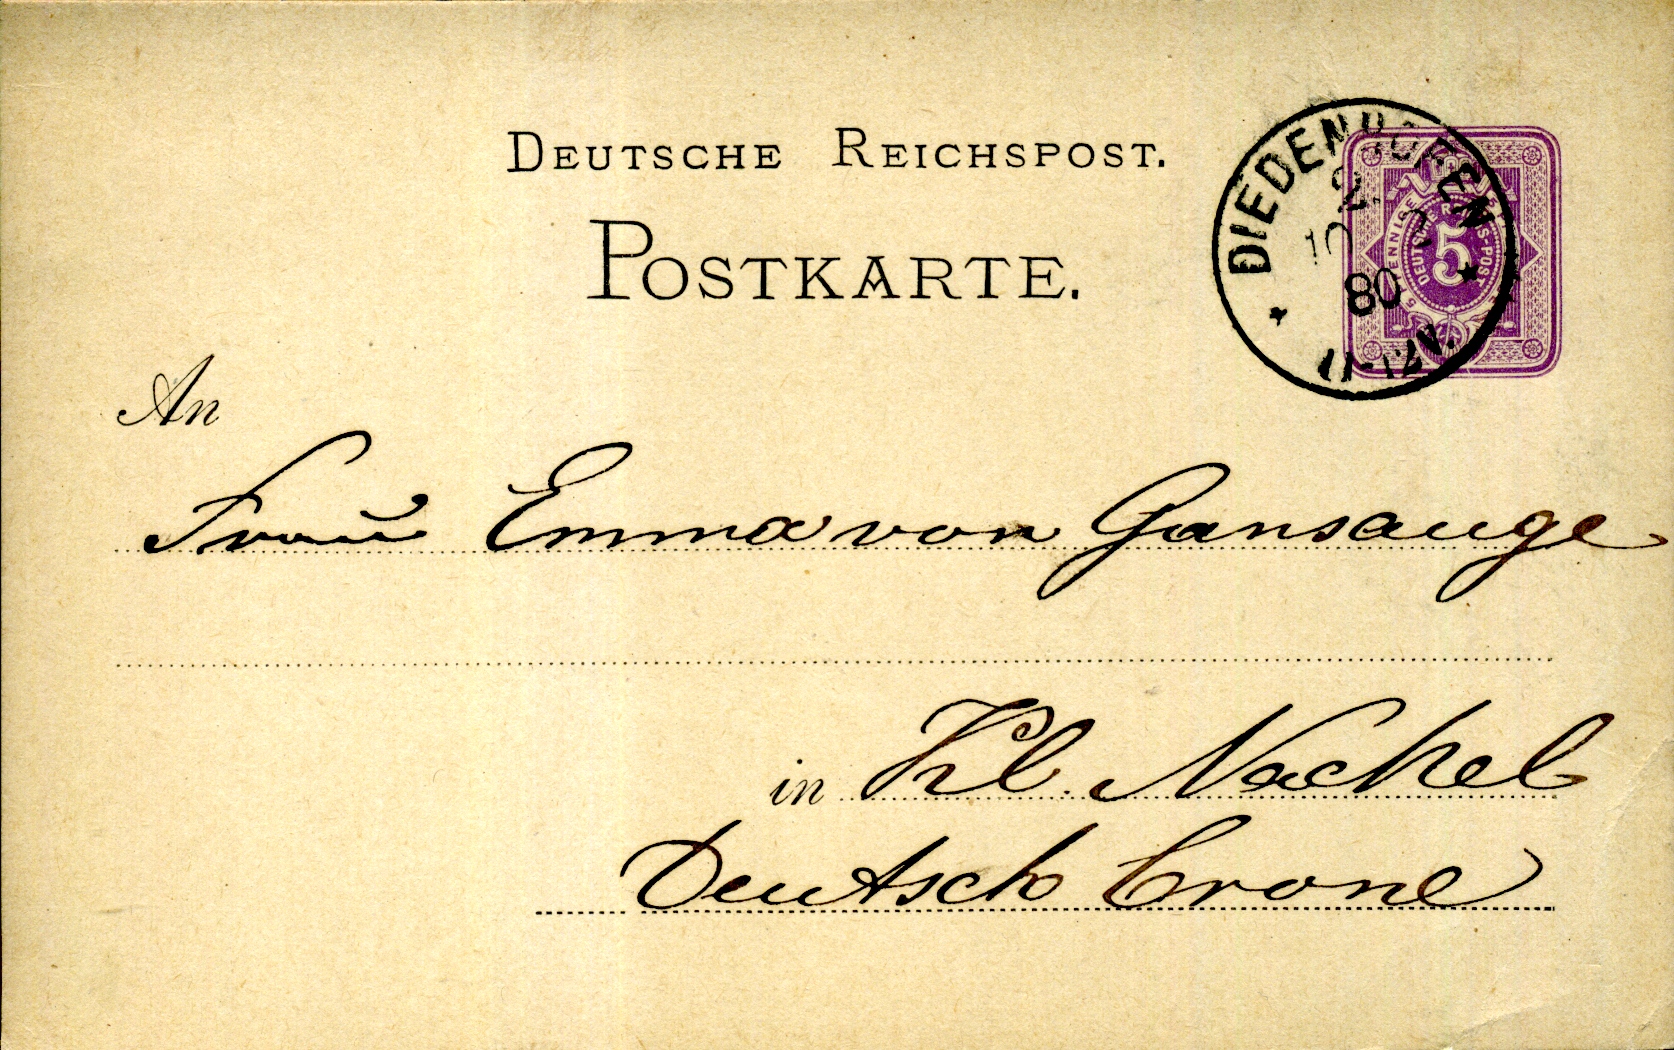 DEUTSCHE REICHSPOST.
POSTKARTE.
DIEDENHOFEN
2
10 2
80
11-12N.
5 PFENNIGE
DEUTSCHE REICHS-POST
5
An
Frau Emma von Gansauge
in Kl. Nackel
Deutsch Crone